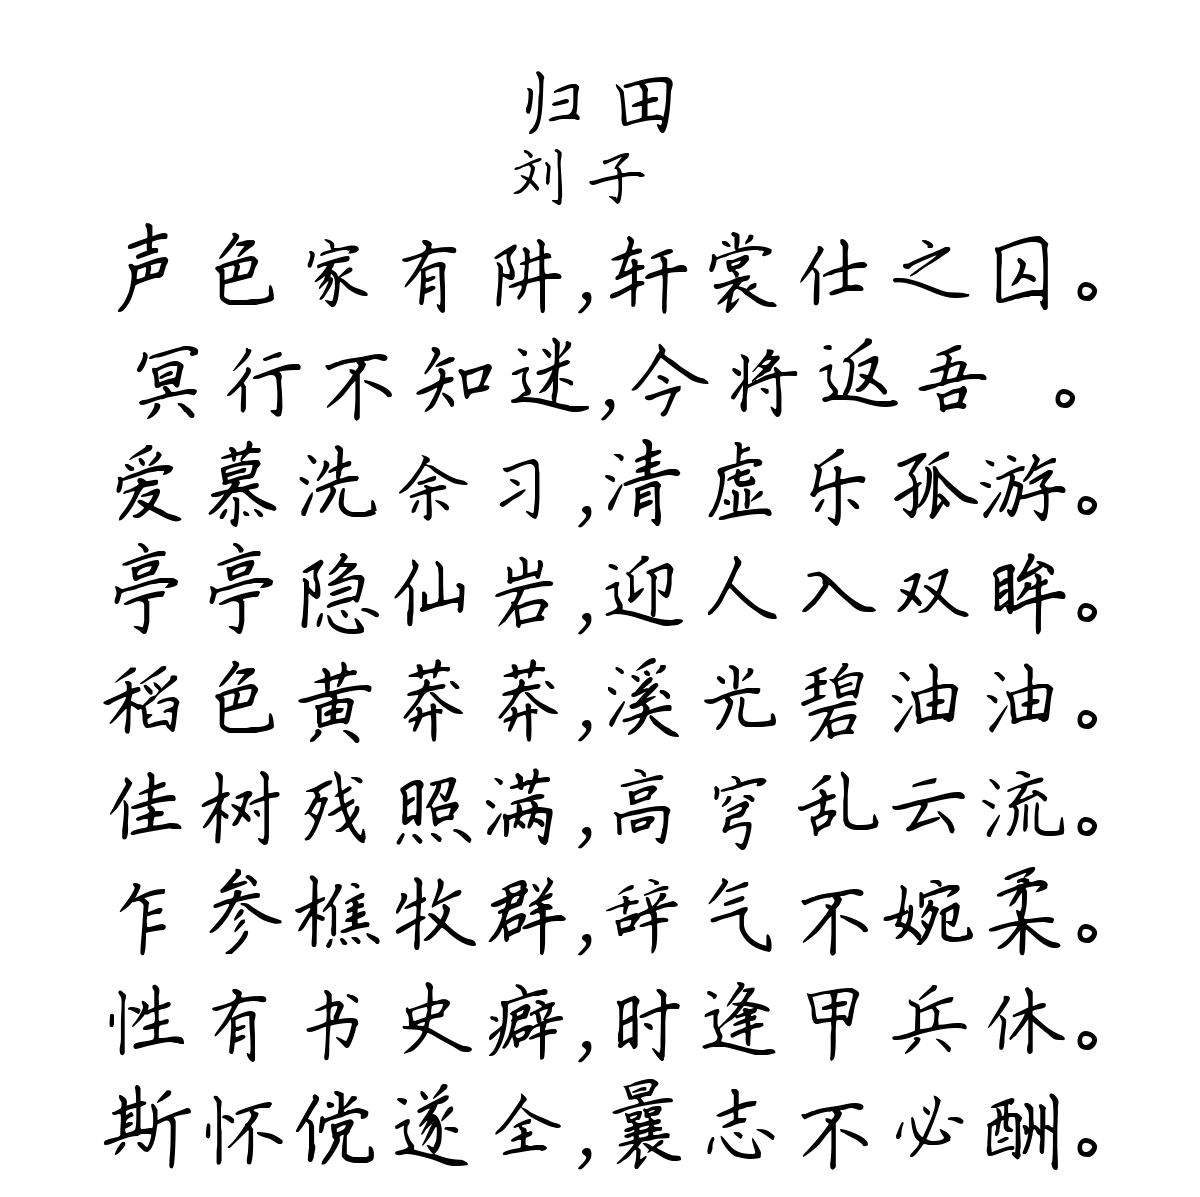 归田
刘子
声色家有阱,轩裳仕之囚。
冥行不知迷,今将返吾 。
爱慕洗余习,清虚乐孤游。
亭亭隐仙岩,迎人入双眸。
稻色黄莽莽,溪光碧油油。
佳树残照满,高穹乱云流。
乍参樵牧群,辞气不婉柔。
性有书史癖,时逢甲兵休。
斯怀傥遂全,曩志不必酬。